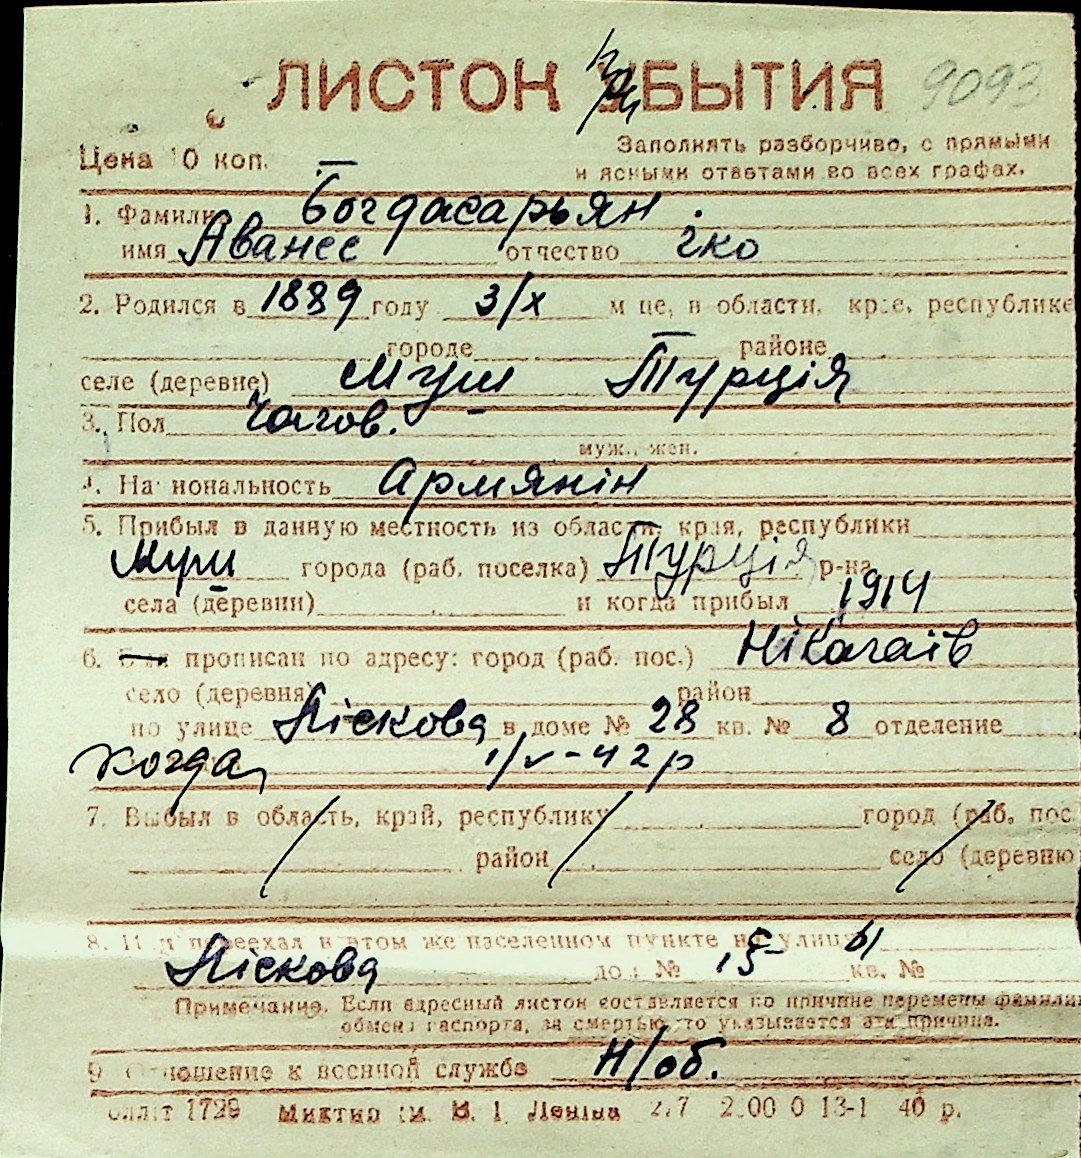 ЛИСТОК УБЫТИЯ 9093
Цена 10 коп. Заполнять разборчиво, с прямыми
и ясными ответами во всех графах.
1. Фамилия Богдасарьян
имя Аванес отчество
2. Родился в 1889 году 3/х м це, в области, крае, республике
городе районе
селе (деревне) Муш Турція
3. Пол Чолов.
муж., жен.
4. Национальность Армянін
5. Прибыл в данную местность из области, края, республики
Муш города (раб. поселка) Турція р-на
села (деревни) и когда прибыл 1914
6. Был прописан по адресу: город (раб. пос.) Ніколаїв
село (деревня) район
по улице Піскова в доме № 28 кв. № 8 отделение
когда 1/v-42р
7. Выбыл в область, край, республику город (раб. пос
район село (деревню
8. Или переехал в этом же населенном пункте на улицу
Піскова дом № 15 кв. №
Примечание. Если адресный листок составляется по причине перемены фамилии
обмена паспорта, за смертью, то указывается эта причина.
9 Отношение к военной службе Н/об.
1729 Ленина 13-1 40 р.